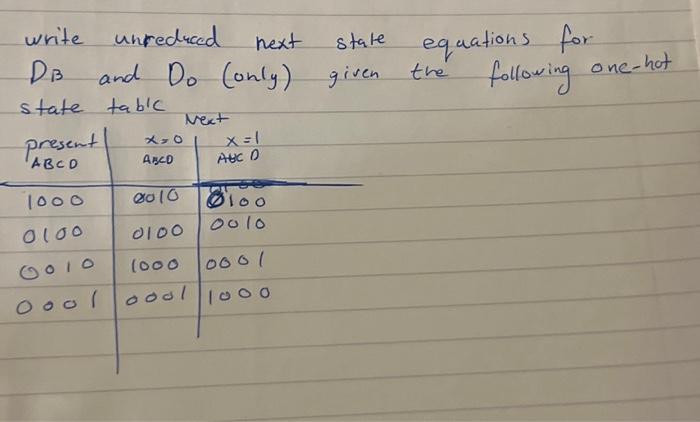 write unreduced next state equations for
DB and DD (only) given the following one-hot
state table
Next
present x=0 x=1
ABCD ABCD ABC D
1000 0010 0100
0100 0100 0010
0010 1000 0001
0001 0001 1000